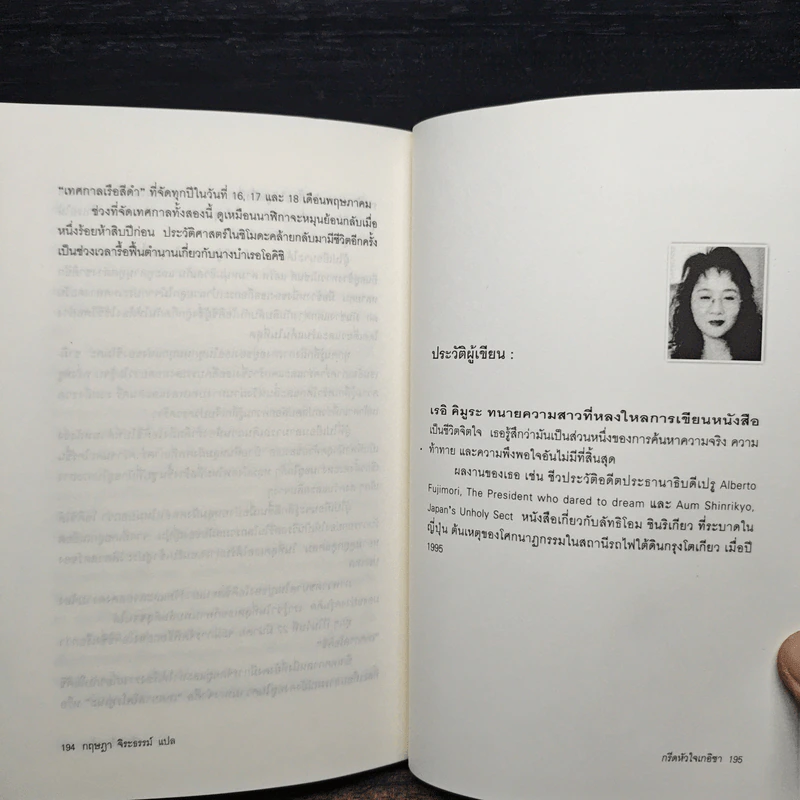 "เทศกาลเรือสีดำ" ที่จัดทุกปีในวันที่ 16, 17 และ 18 เดือนพฤษภาคม
ช่วงที่จัดเทศกาลทั้งสองนี้ ดูเหมือนนาฬิกาจะหมุนย้อนกลับเมื่อ
หนึ่งร้อยห้าสิบปีก่อน ประวัติศาสตร์ในชิโมดะคล้ายกลับมามีชีวิตอีกครั้ง
เป็นช่วงเวลารื้อฟื้นตำนานเกี่ยวกับนางบำเรอโอคิชิ
194 กฤษฎา จิระธรรม์ แปล
ประวัติผู้เขียน :
เรอิ คิมูระ ทนายความสาวที่หลงใหลการเขียนหนังสือ
เป็นชีวิตจิตใจ เธอรู้สึกว่ามันเป็นส่วนหนึ่งของการค้นหาความจริง ความ
ท้าทาย และความพึงพอใจอันไม่มีที่สิ้นสุด
ผลงานของเธอ เช่น ชีวประวัติอดีตประธานาธิบดีเปรู Alberto
Fujimori, The President who dared to dream และ Aum Shinrikyo,
Japan's Unholy Sect หนังสือเกี่ยวกับลัทธิโอม ชินริเกียว ที่ระบาดใน
ญี่ปุ่น ต้นเหตุของโศกนาฏกรรมในสถานีรถไฟใต้ดินกรุงโตเกียว เมื่อปี
1995
กรีดหัวใจเกอิชา 195